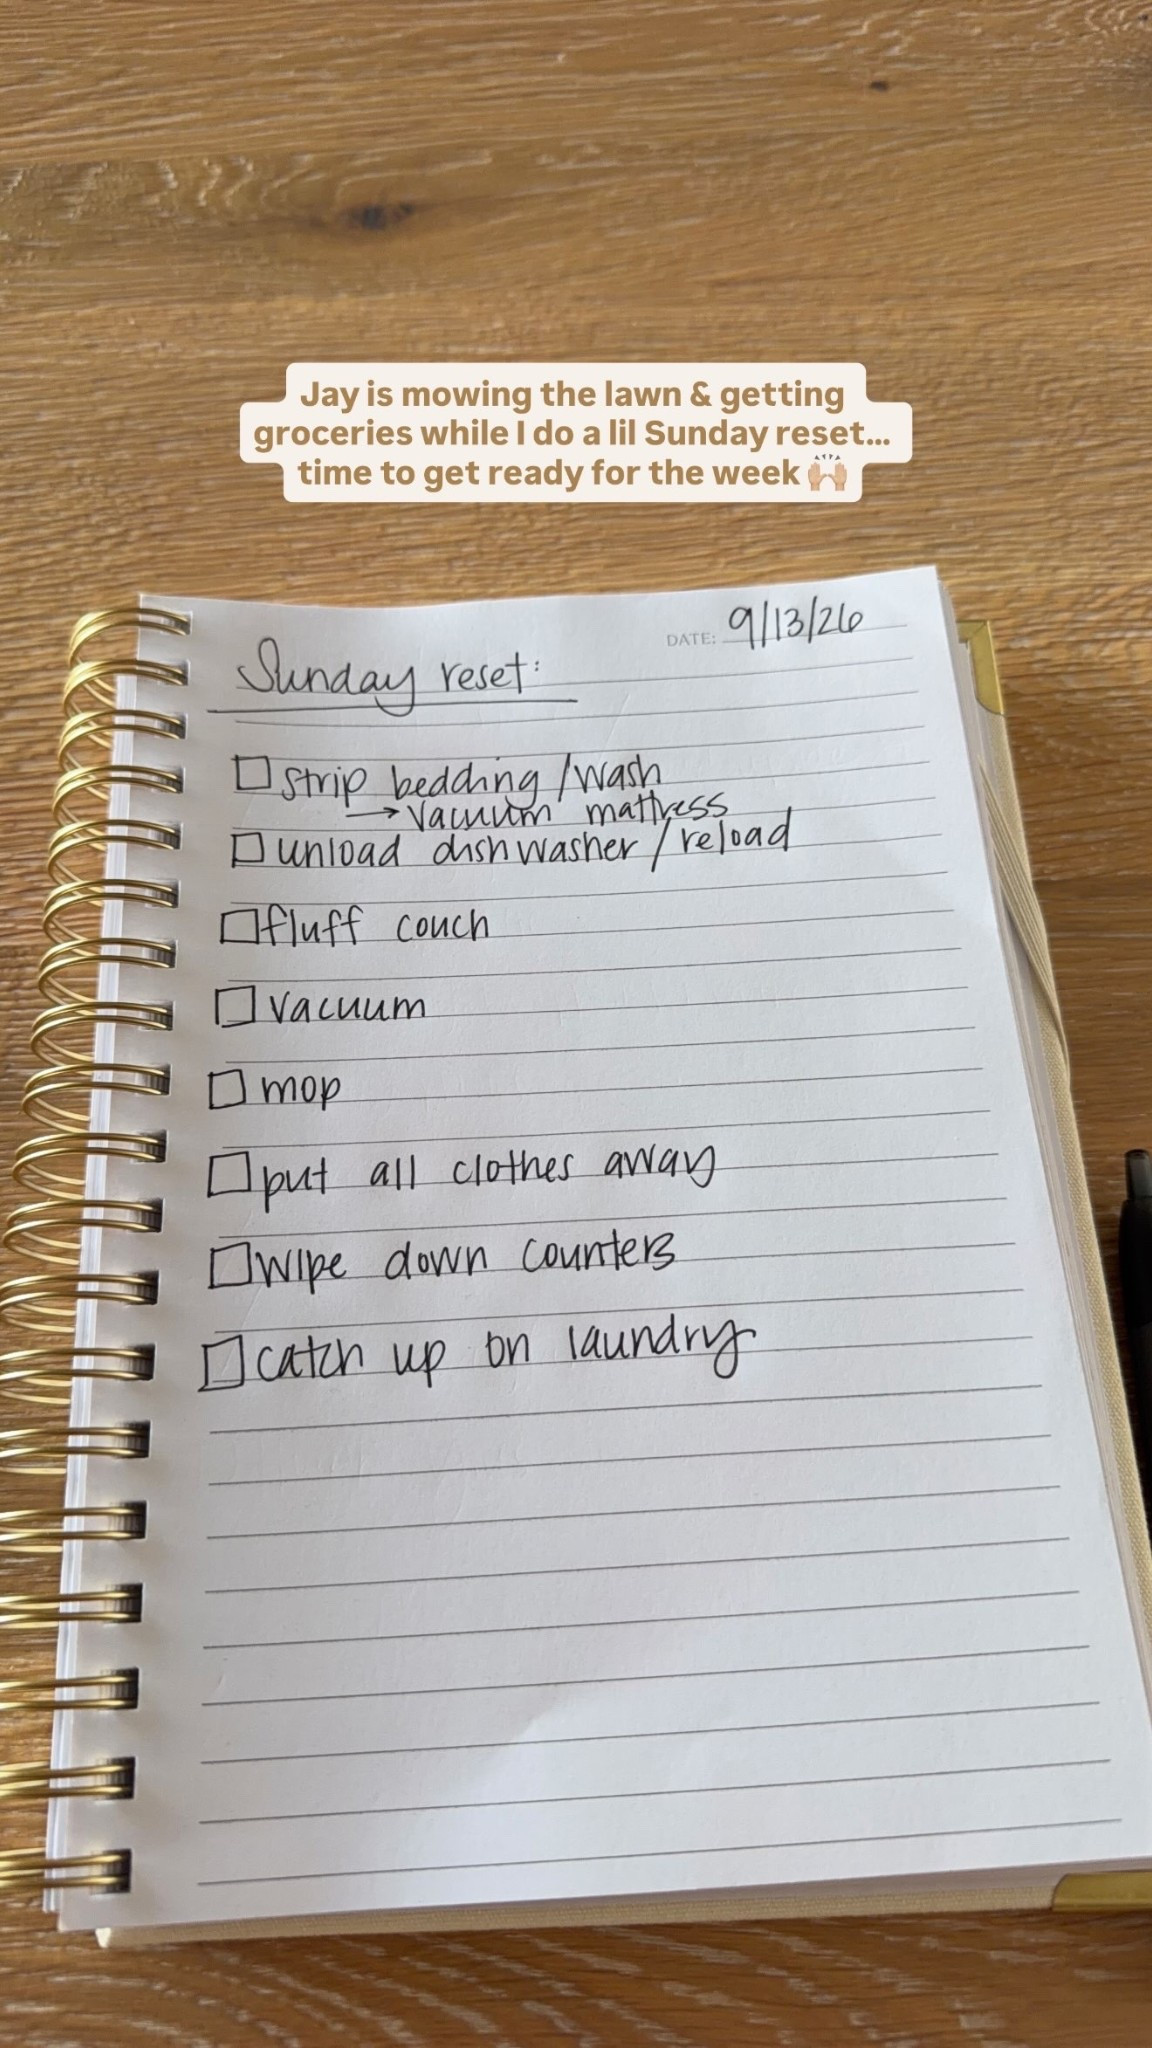 Jay is mowing the lawn & getting
groceries while I do a lil Sunday reset...
time to get ready for the week 🙌🏼
DATE: 9/13/26
Sunday reset:
strip bedding/wash
→ vacuum mattress
unload dishwasher/reload
fluff couch
vacuum
mop
put all clothes away
wipe down counters
catch up on laundry